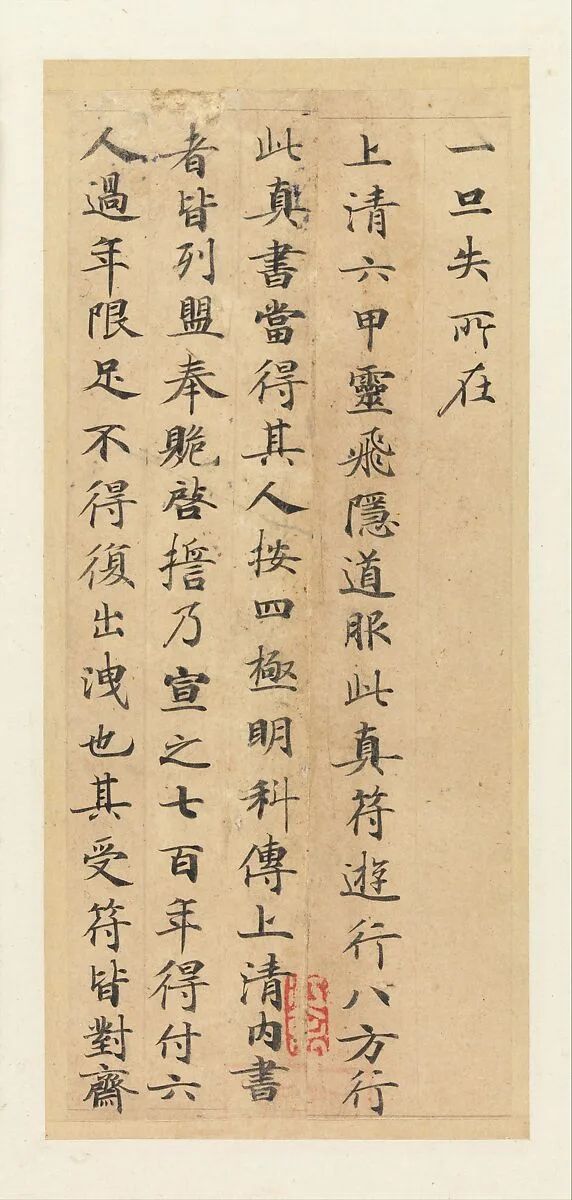 一旦失所在
上清六甲靈飛隱道服此真符遊行八方行
此真書當得其人按四極明科傳上清內書
者皆列盟奉賝啓擔乃宣之七百年得付六
人過年限足不得復出洩也其受符皆對齋